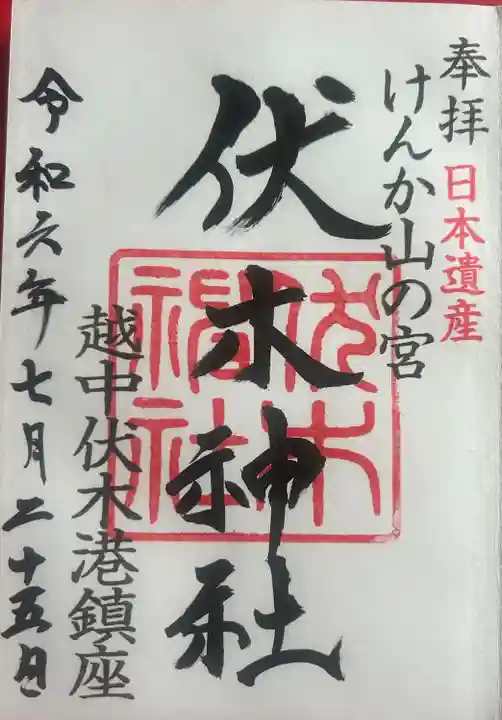 奉拝 日本遺産
けんか山の宮
伏木神社
伏木神社
越中伏木港鎮座
令和六年七月二十五日